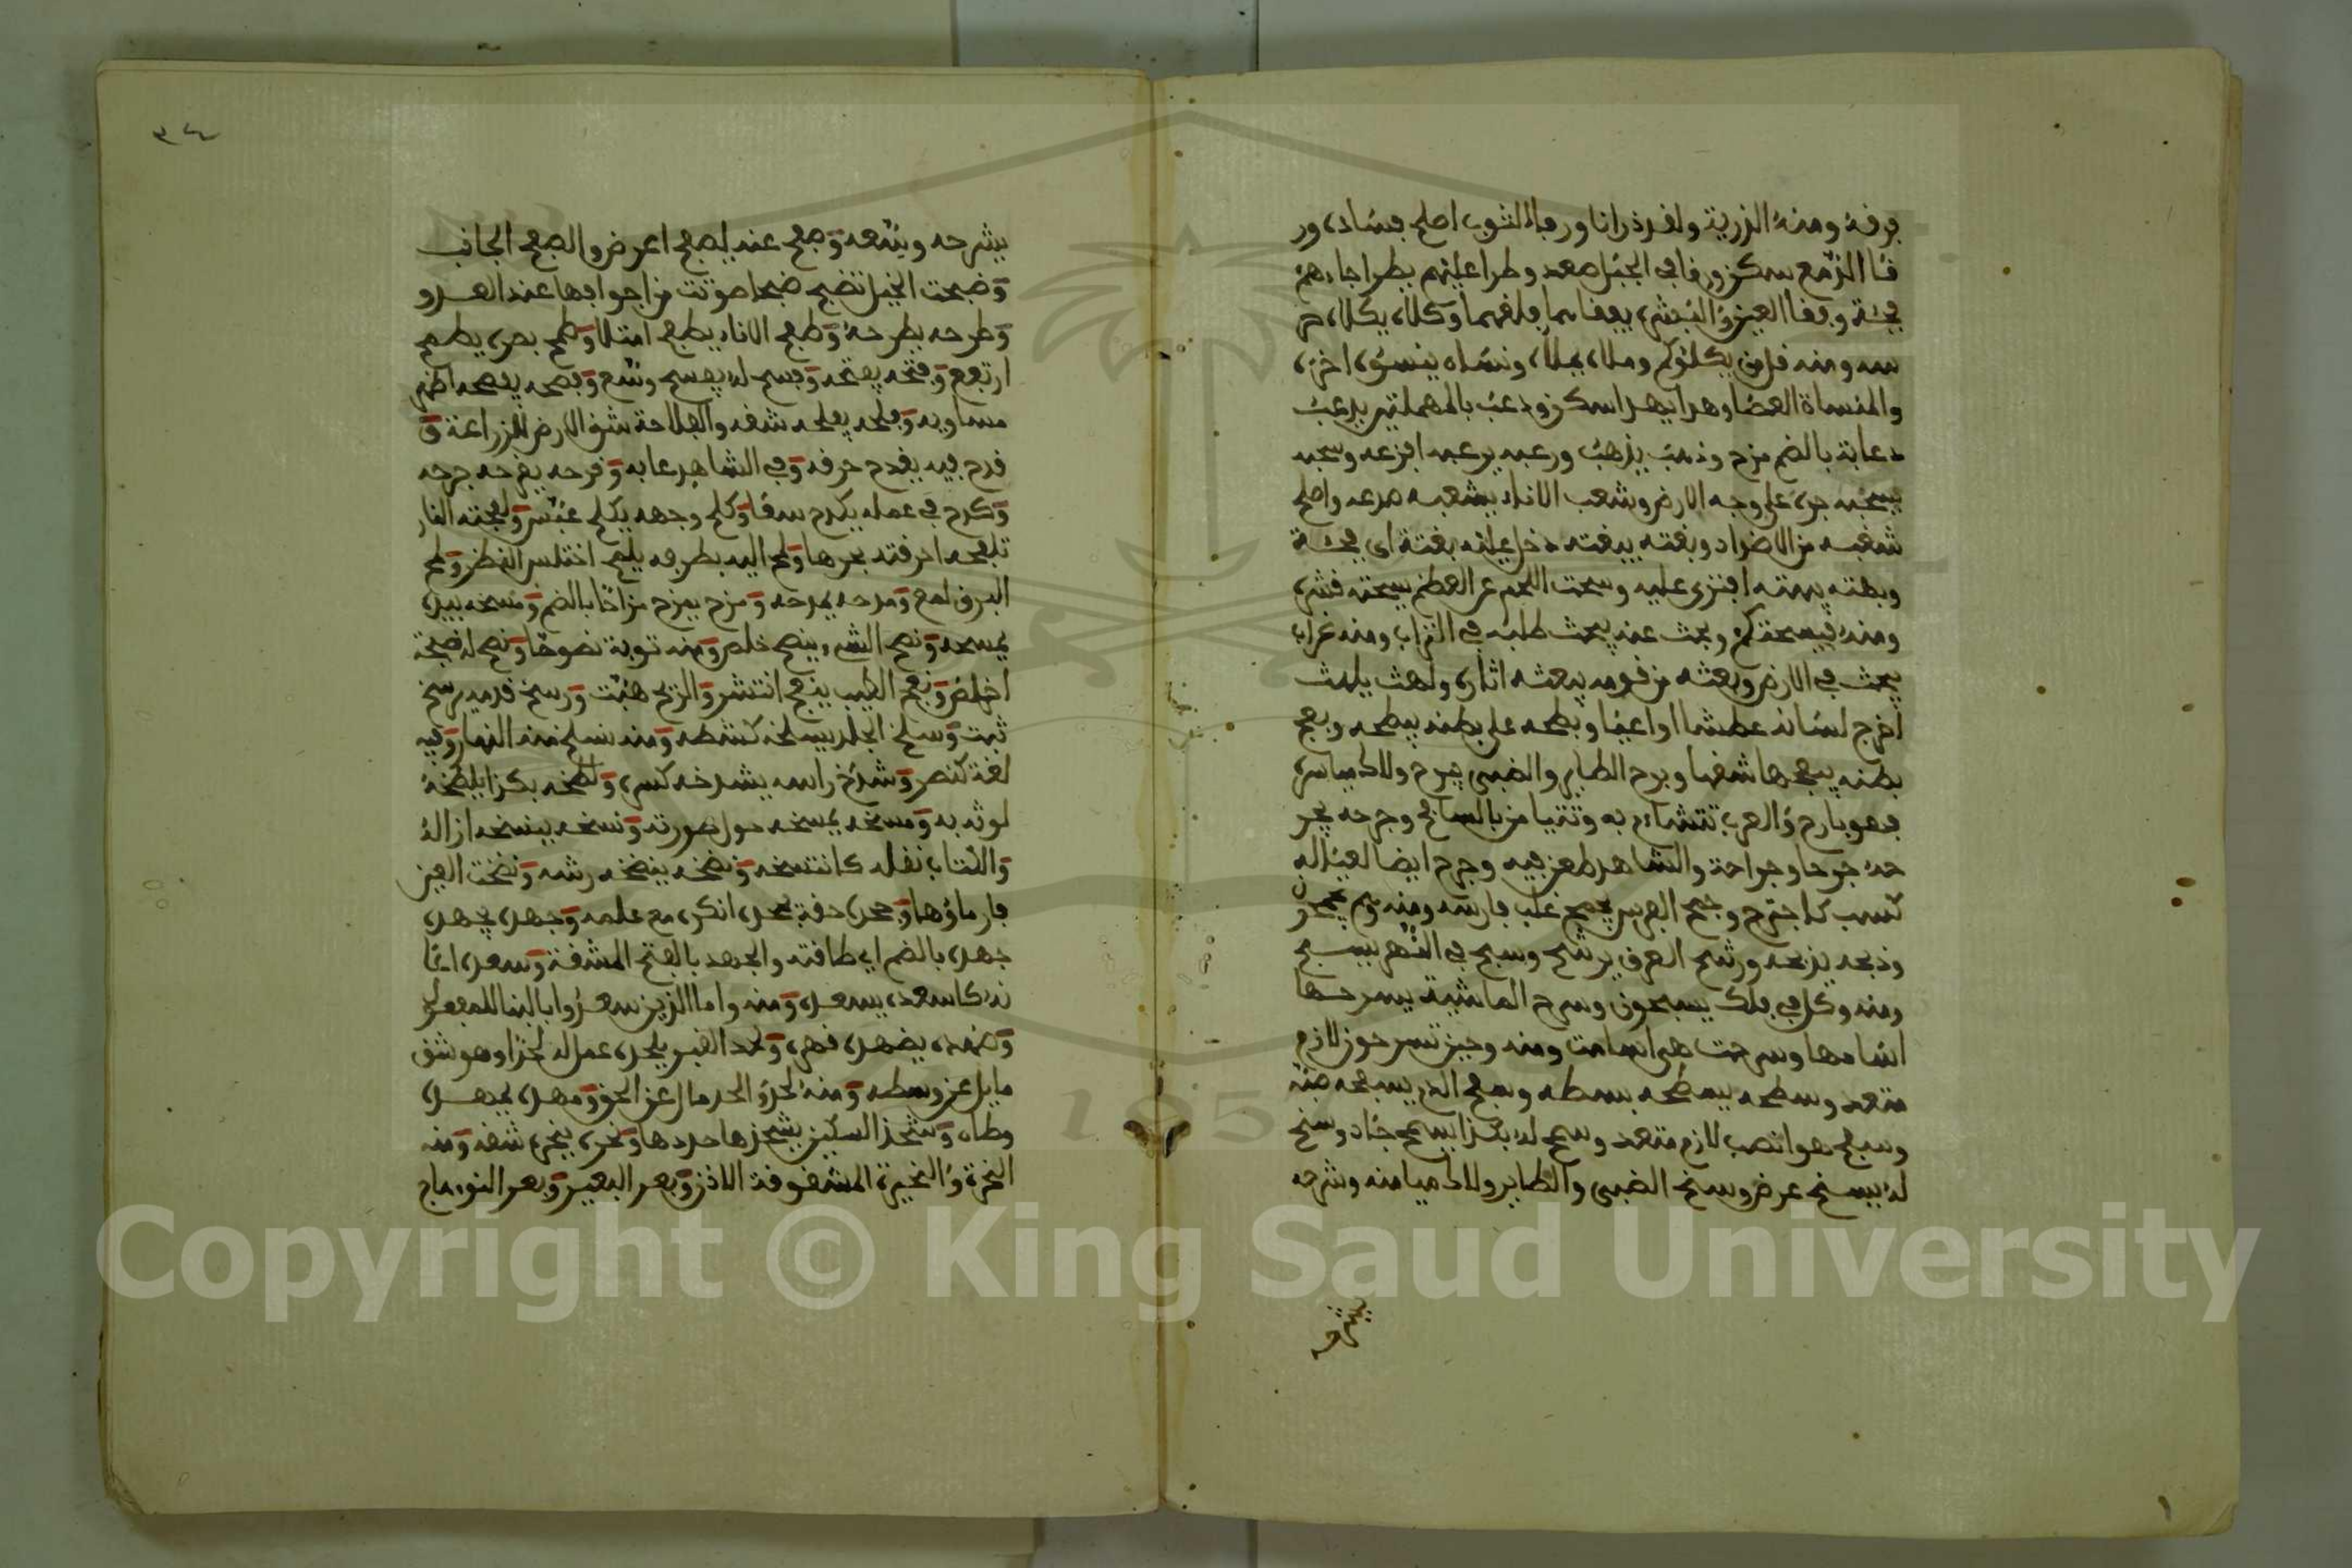 فرفه ومنه الذرية ولقد ذرانا ورفا الثوب اصلح فساده ور
قا الدمع سكن ورقا في الجبل صعد وطرا عليهم يطرا جاءهم
فجئة وفقا العين والبثر، يفقاهما قلعهما وكلاه يكلاه حر
سه ومنه قل من يكلؤكم وملاه يملاه ونساه ينسؤه اخره
والمنساة العصا وهدا يهدا سكن ودعب بالمهملتين يدعب
دعابة بالضم مزح وذهب يذهب ورعبه يرعبه افزعه وسحبه
يسحبه جره على وجه الارض وشعب الاناء يشعبه صدعه واصلح
شعبه من الاضداد وبغته يبغته دخل عليه بغتة اي فجئة
وبهته يبهته افترى عليه وسحت اللحم عن العظم يسحته قشره
ومنه فيسحتكم وبحث عنه يبحث طلبه في التراب ومنه غرابا
يبحث في الارض وبعثه من نومه يبعثه اثاره ولهث يلهث
اخرج لسانه عطشا او اعيا وبطحه على بطنه يبطحه وبعج
بطنه يبعجها شقها وبرح الطاير والظبي يبرح ولاك مياسره
فهو بارح والعرب تتشاءم به وتتيامن بالسانح وجرحه يجر
حه جرحا وجراحة والشاهد طعن فيه وجرح ايضا لعياله
كسب كاجترح وجمح الفرس يجمح غلب فارسه ومنه وهم يجمحون
وذبحه يذبحه ورشح العرق يرشح وسبح في النهر يسبح
ومنه وكل في فلك يسبحون وسرح الماشية يسرحها
اسامها وسرحت هي اسامت ومنه وحين تسرحون لازم
متعد وسطحه يسطحه بسطه وسفح الدم يسفحه صبه
وسفح هو انصب لازم متعد وسمح له بكذا يسمح جاد وسنح
له يسنح عرض وسنح الظبي والطاير ولاك ميامنه وشرحه
يشرحه
٣٤
يشرحه وسعه وصفح عنه يصفح اعرض والصفح الجانب
وضبحت الخيل تضبح ضبحا صوتت من اجوافها عند العدو
وطرحه يطرحه وطفح الاناء يطفح امتلا وطمح بصره يطمح
ارتفع وفتحه يفتحه وفسح له يفسح وسع وفضحه يفضحه اظهر
مساويه وفلحه يفلحه شقه والفلاحة شق الارض للزراعة و
قدح فيه يقدح حرفه وفي الشاهد عابه وقرحه يقرحه جرحه
وكدح في عمله يكدح سعا وكلح وجهه يكلح عبس ولفحته النار
تلفحه احرقته بحرها ولمح اليه بطرفه يلمح اختلس النظر ولمح
البرق لمع ومدحه يمدحه ومزح يمزح مزاحا بالضم ومسحه بيده
يمسحه ونصح الشيء ينصح خلص ومنه توبة نصوحا ونصح له نصيحة
اخلص ونفح الطيب ينفح انتشر والريح هبت ورسخ قدمه يرسخ
ثبت وسلخ الجلد يسلخه كشطه ومنه نسلخ منه النهار وفيه
لغة كنصر وشدخ راسه يشدخه كسره ولطخه بكذا يلطخه
لوثه به ومسخه يمسخه حول صورته ونسخه ينسخه ازاله
والكتاب نقله كانتسخه ونضخه ينضخه رشه ونضخت العين
فار ماؤها وجحده حقه يجحده انكره مع علمه وجهده يجهده
جهده بالضم اي طاقته والجهد بالفتح المشقة وسعده اعا
نه كاسعده يسعده ومنه واما الذين سعدوا بالبنا للمفعول
وضهده يضهده قهره ولحد القبر يلحده عمل له لحدا وهو شق
مايل عن وسطه ومنه لحد والحد مال عن الحق ومهده يمهده
وطاه وشحذ السكين يشحذها حددها وبحره يبحره شقه ومنه
البحر والبحيرة المشقوقة الاذن وبعر البعير وبعر النوء هاج